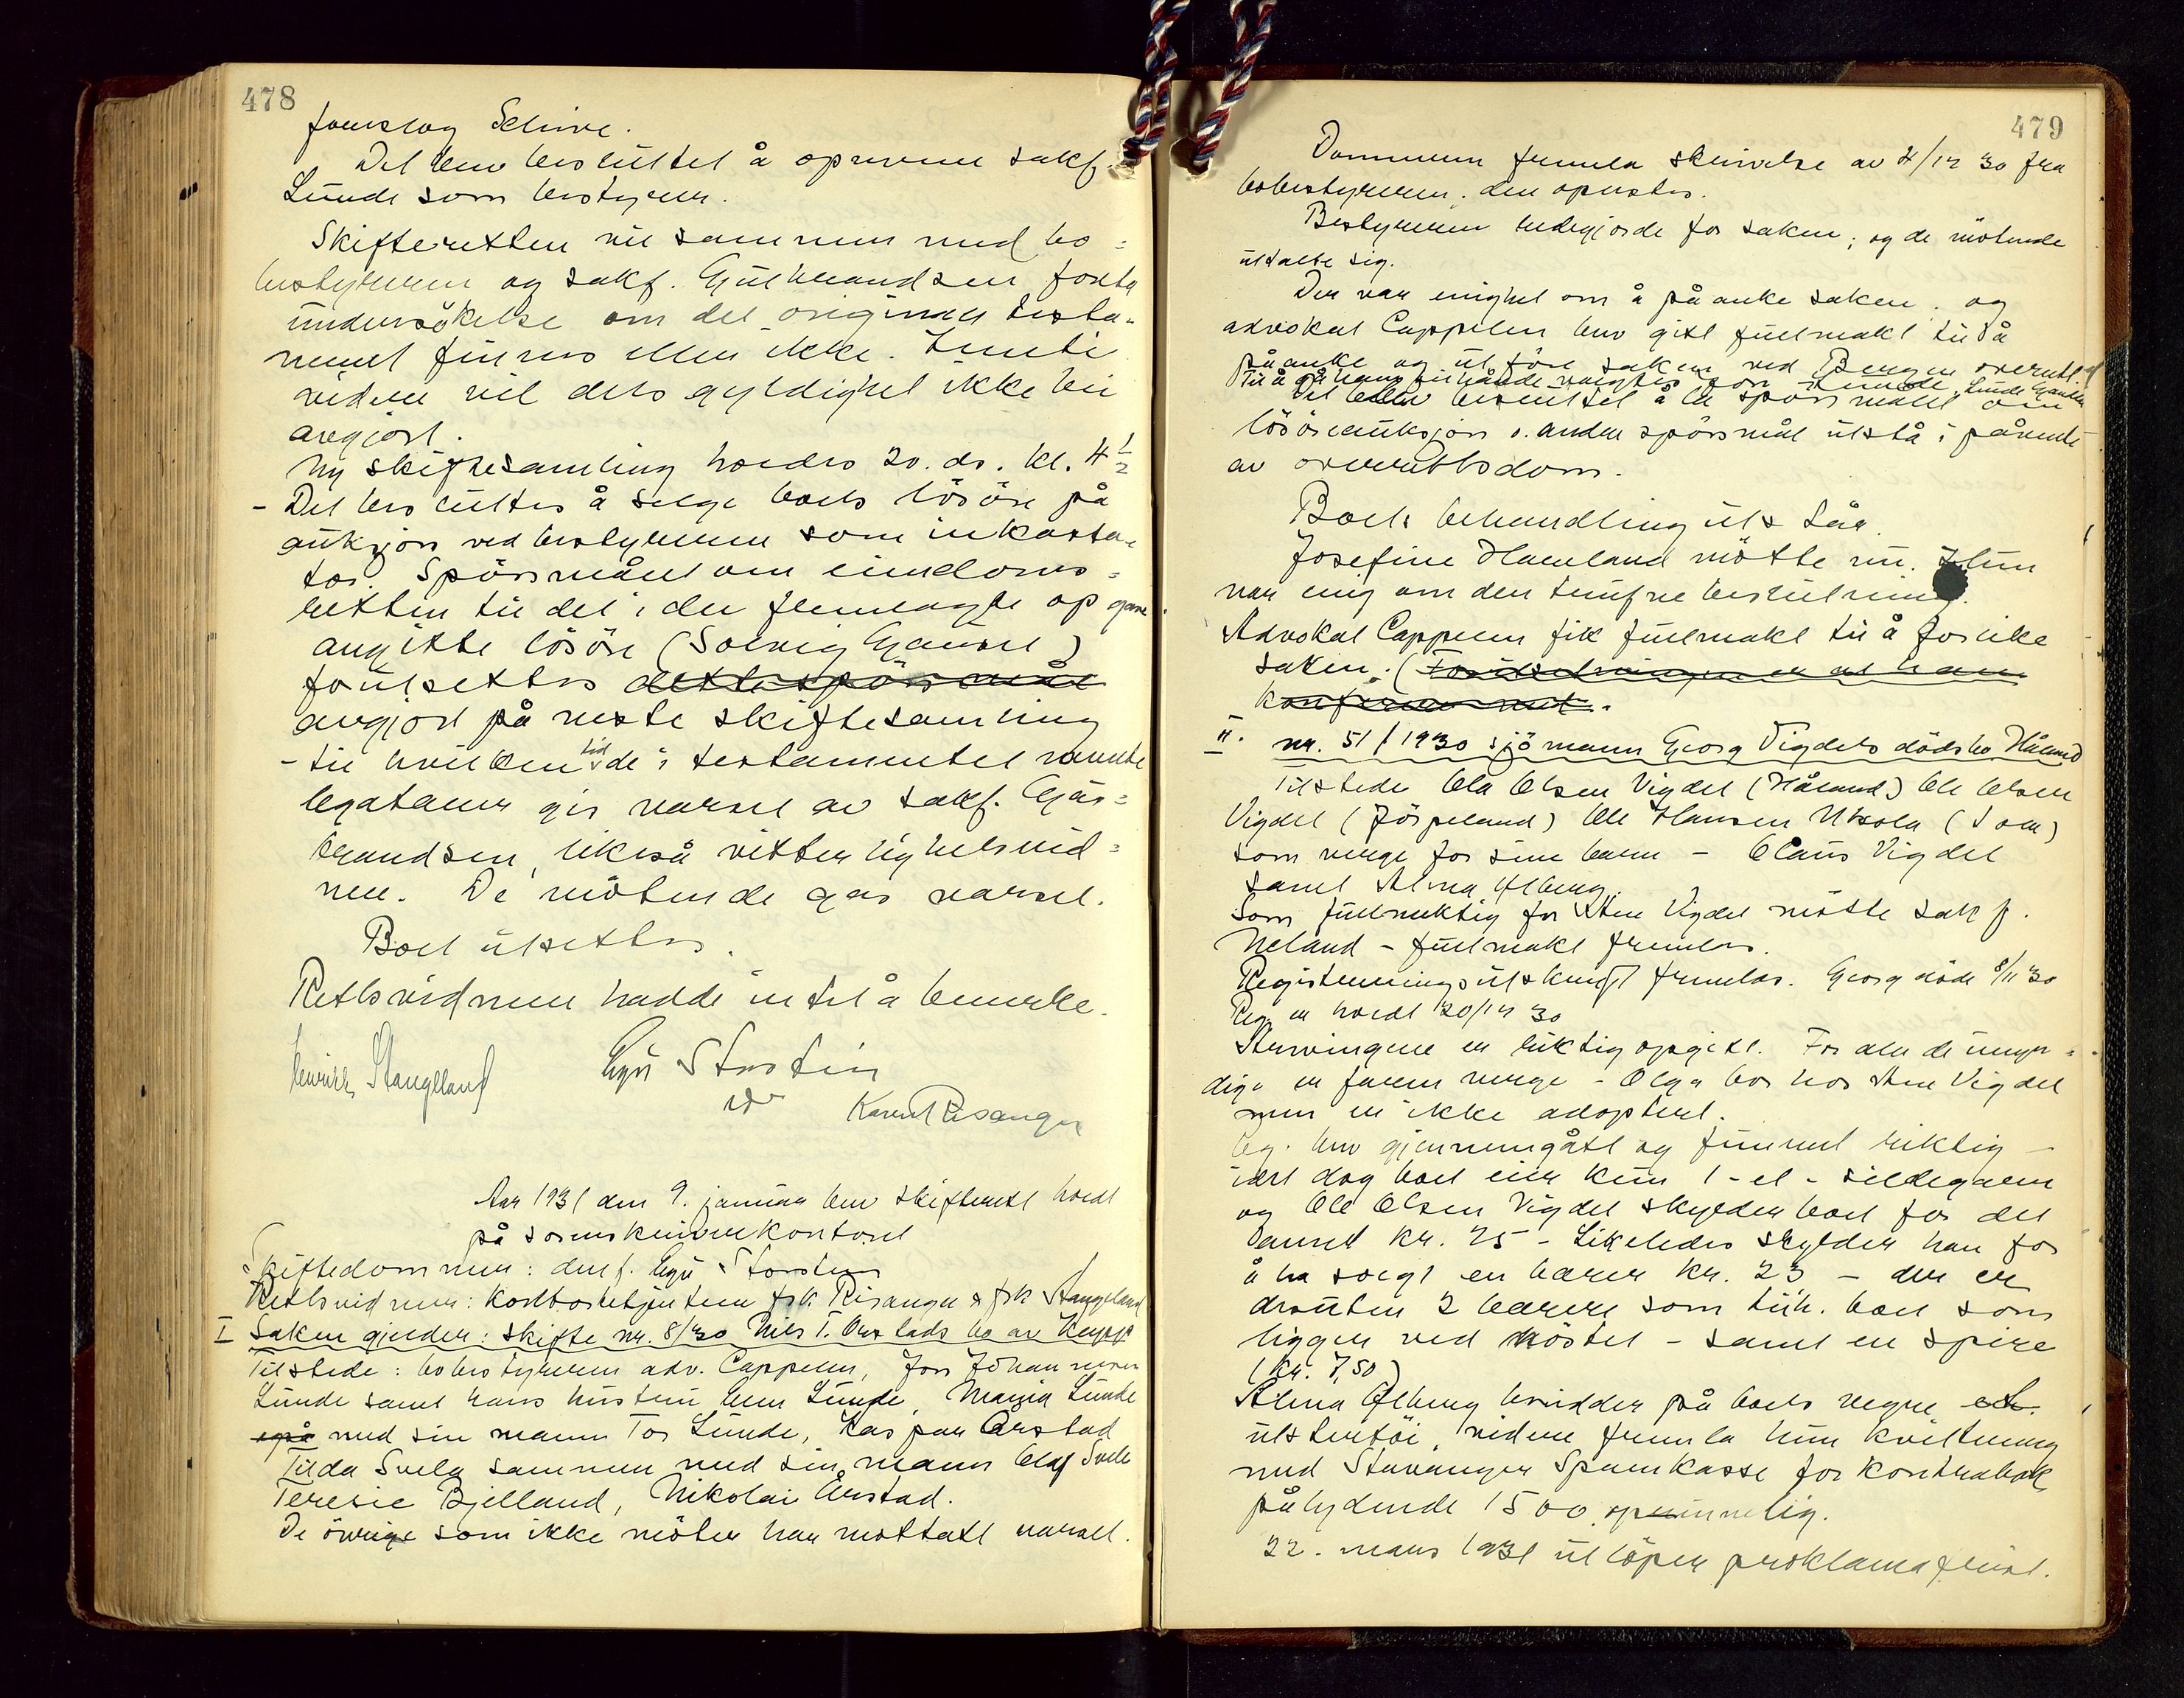 478
forslag Schive.
Det blev besluttet å opnevne sakf.
Lunde som bestyrer.
Skifteretten vil sammen med bo=
bestyreren og sakf. Gulbrandsen foreta
undersökelse om det originale testa=
ment finnes eller ikke. Inntil
videre vil dets gyldighet ikke bli
avgjort.
Ny skiftesamling holdes 20. ds. kl. 4 1/2
- Det besluttes å selge boets lösöre på
auksjon ved bestyreren som inkassa=
tor. Spörsmålet om eiendoms=
retten til det i den fremlagte opgave
angitte lösöre (Solveig
utsettes dette spörsmål
avgjort på neste skiftesamling
- til hvilken tid de i testamentet nevnte
legatarer gis varsel av sakf. Gul=
brandsen, likeså vitterlighetsvid=
nene. De mötende gis varsel.
Boet utsettes.
Retsvidnene hadde intet å bemerke.
Henrik Stangeland
Karl Risanger
Aar 1931 den 9. januar blev skifterett holdt
på sorenskriverkontoret
Skiftedommer: dmf.
Retsvidner: kontorbetjentene frk. Risanger & frk Stangeland
I Saken gjelder: skifte nr. 8/30 Nils T. Orstads bo av Klepp
Tilstede: bobestyreren adv. Cappelen, Jon Johannesen
Lunde samt hans hustru Lunde, Maria Lunde
også med sin mann Tor Lunde, Kaspar Orstad
Tilda Svela sammen med sin mann Olaf Svela
Teresie Bjelland, Nikolai Orstad.
De övrige som ikke möter har mottatt varsel.
479
Dommeren fremla skrivelse av 4/12 30 fra
bobestyreren; den oplestes.
Bestyreren redegjorde for saken; og de mötende
uttalte sig.
Der var enighet om å påanke saken; og
advokat Cappelen blev gitt fullmakt til å
påanke og utföre saken ved Bergen overrett.
Til å gå ham tilhånde valgtes Jon Lunde,
Det blev besluttet å la spörsmålet om
lösöreauksjon o. andre spörsmål utstå i påvente
av overrettsdom.
Boets behandling utstår.
Josefine Haaland mötte nu. Hun
var enig om den trufne beslutning.
Advokat Cappelen fik fullmakt til å forlike
saken. (Forutsetningen er at han
konfererer med.
II. nr. 51/1930 sjömann Georg Vigdels dödsbo Håland
Tilstede Ola Olsen Vigdel (Håland) Ole Olsen
Vigdel (Jörpeland) Ole Hansen Utsola (Sola)
som verge for sine barn - Olaus Vigdel
samt Alma Ölberg.
Som fullmektig for Vigdel mötte sakf.
Neland - fullmakt fremlas.
Registreringsutskrift fremlas. Georg döde 8/11 30
Reg. er holdt 20/12 30
Arvingene er riktig opgitt. For alle de umyn=
dige er faren verge - Olga bor hos Vigdel
men er ikke adoptert.
Reg. blev gjennemgått og funnet riktig -
idet dog boet eier kun 1 - et - sildegarn
og Ole Olsen Vigdel skylder boet for det
kr. 25 - Likeledes skylder han for
å ha solgt en kr. 23 - der er
dessuten 2 som tilh. boet som
ligger ved - samt en spire
(kr. 7,50)
Alma Ölberg på boets vegne
videre fremla hun kvittering
med Stavanger Sparekasse for kontrabok
pålydende 1500 oprinnelig.
22. mars 1931 utlöper proklamafrist.